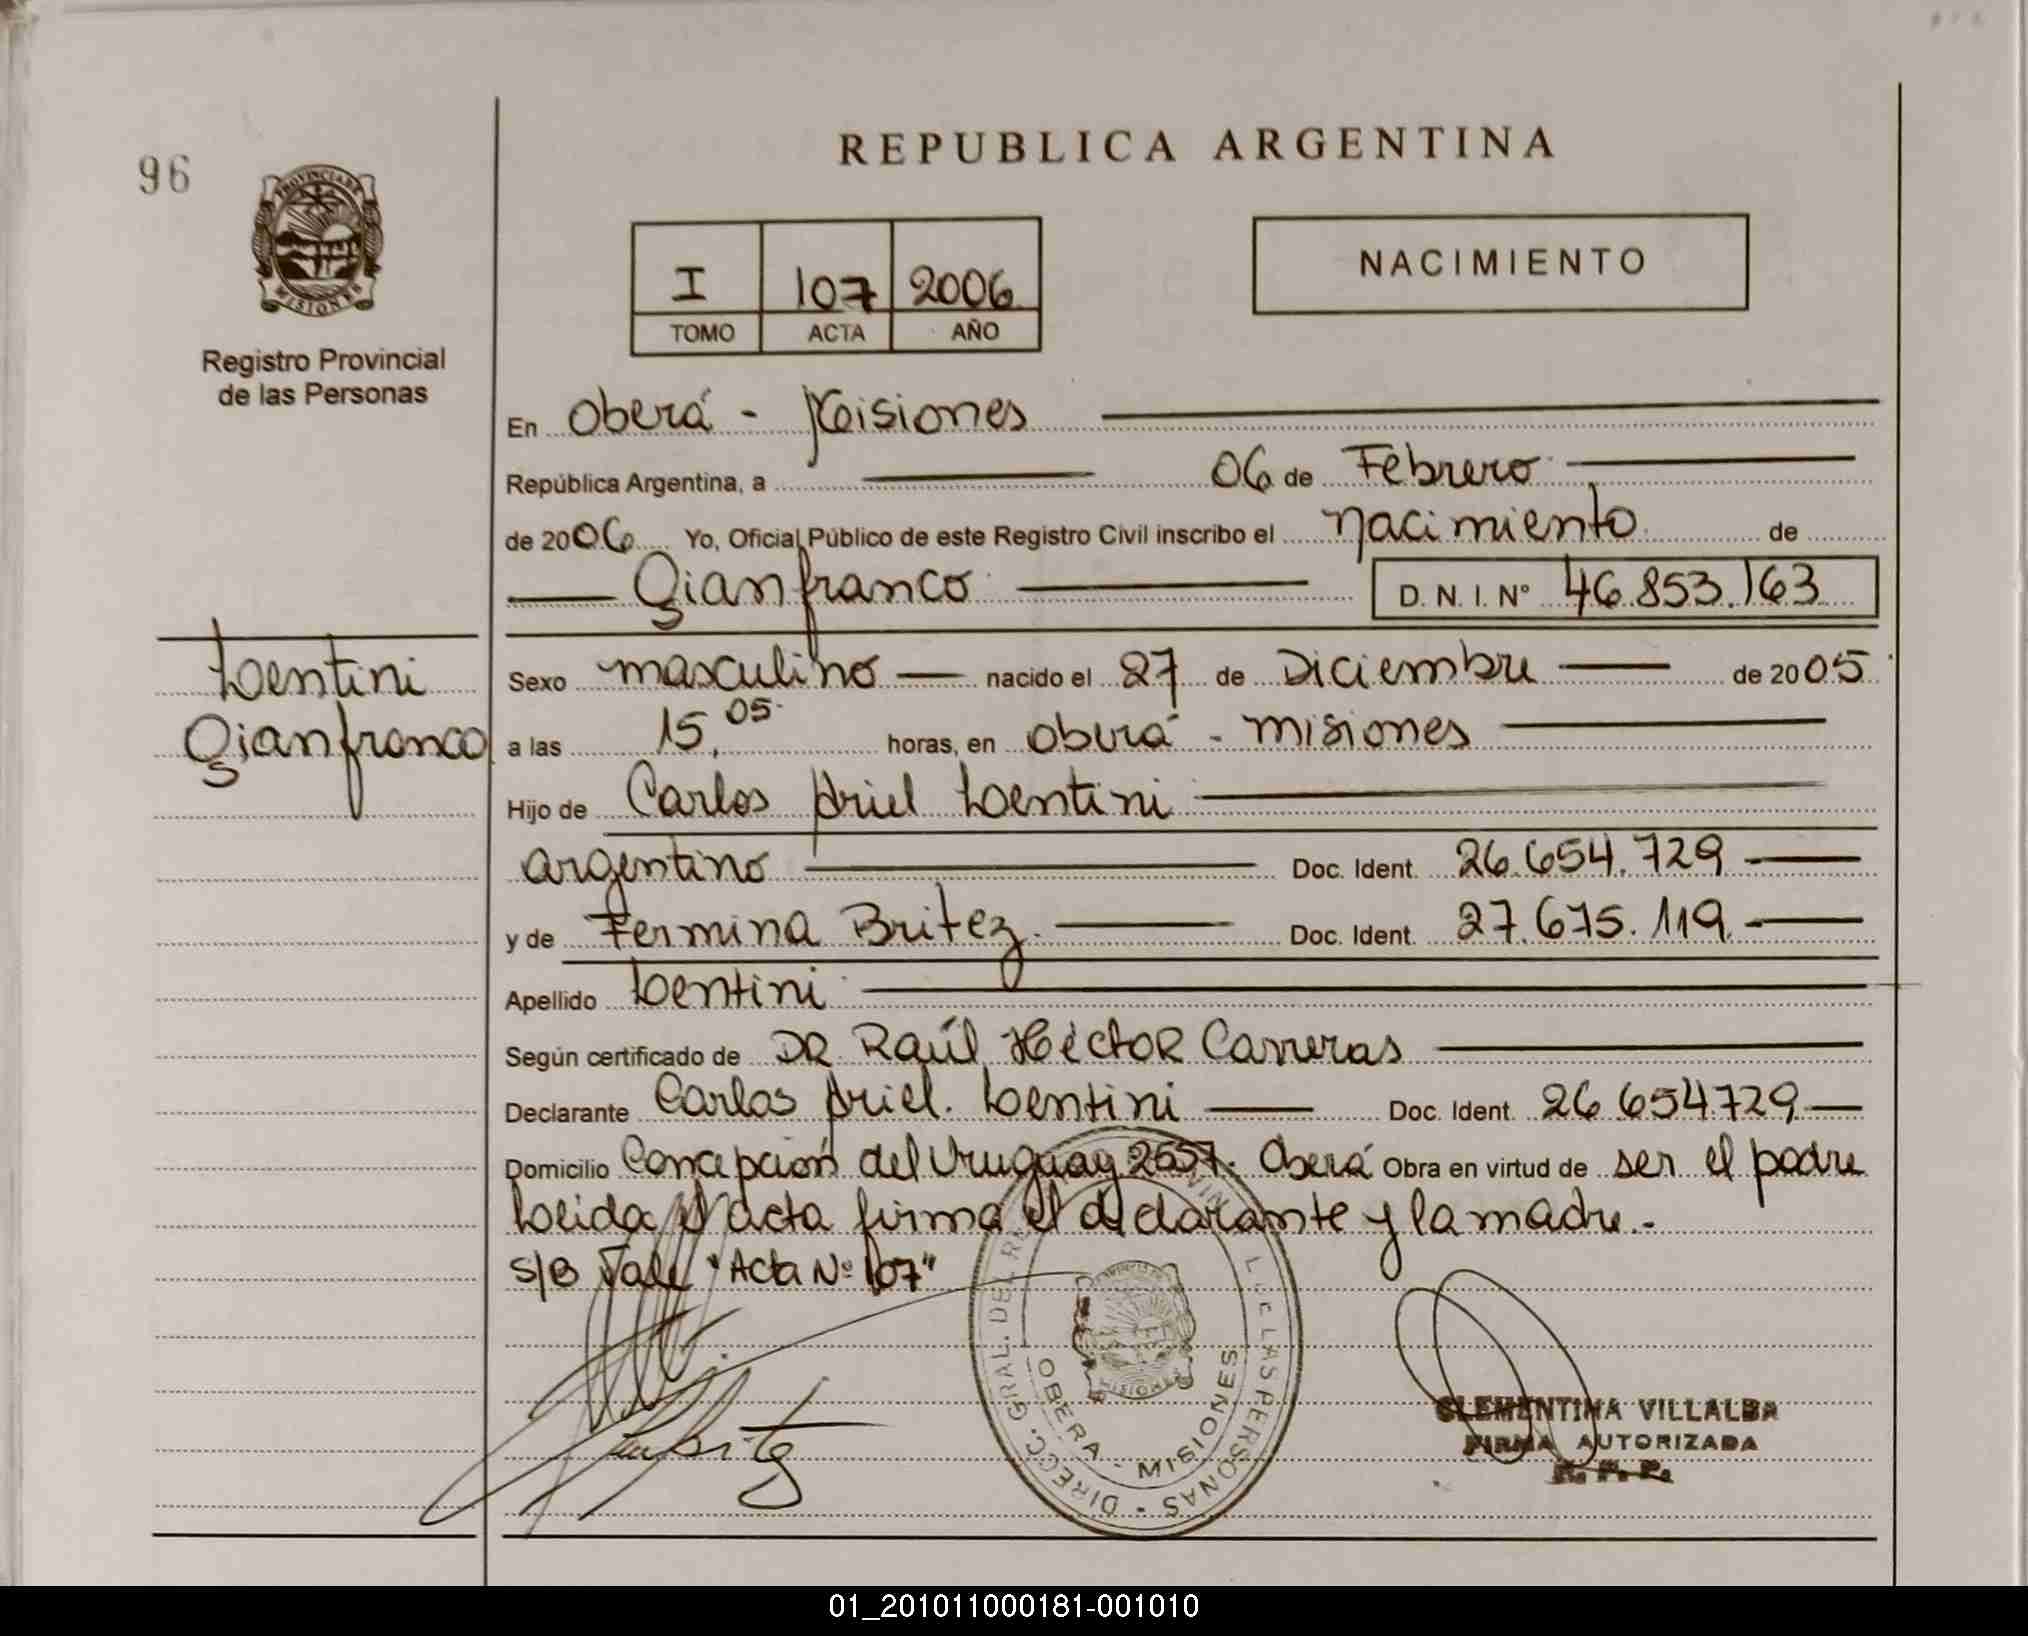 96
REPUBLICA ARGENTINA
I 107 2006
TOMO ACTA AÑO
NACIMIENTO
PROVINCIA DE
MISIONES
Registro Provincial
de las Personas
En Oberá - Misiones
República Argentina, a 06 de Febrero
de 2006 Yo, Oficial Público de este Registro Civil inscribo el nacimiento de
Gianfranco D. N. I. Nº 46.853.163
Lentini
Gianfranco
Sexo masculino nacido el 27 de Diciembre de 2005
a las 15,05 horas, en Oberá - Misiones
Hijo de Carlos Ariel Lentini
argentino Doc. Ident. 26.654.729
y de Fermina Britez. Doc. Ident. 27.675.119
Apellido Lentini
Según certificado de DR. Raúl Héctor Carreras
Declarante Carlos Ariel. Lentini Doc. Ident. 26.654.729
Domicilio Concepción del Uruguay 2557. Oberá Obra en virtud de ser el padre
Leida el acta firma el declarante y la madre.-
S/B Vale "Acta Nº 107"
DIRECC. GRAL. DEL DE LAS PERSONAS -
OBERA - MISIONES
MISIONES
Britez
CLEMENTINA VILLALBA
FIRMA AUTORIZADA
R. P. P.
01_201011000181-001010